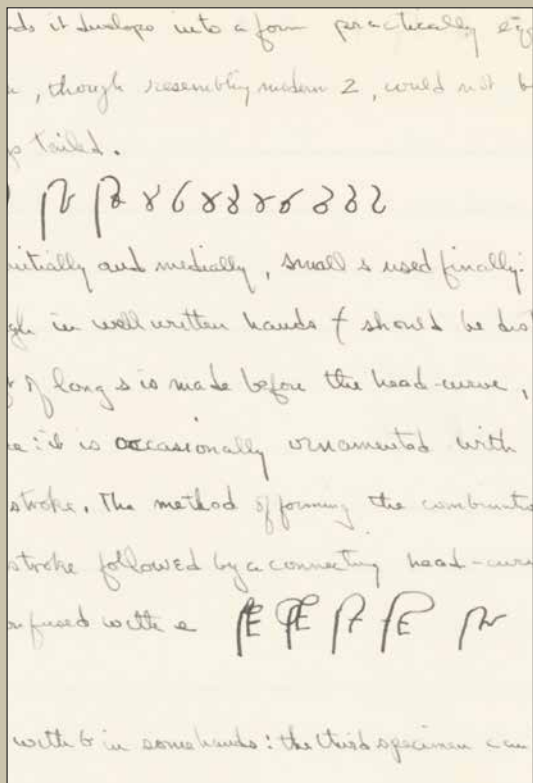 it develops into a form practically
, though resembling modern 2, would not b
tailed.
initially and medially, small s used finally:
in well written hands f should be dis
of long s is made before the head-curve,
: it is occasionally ornamented with
stroke. The method of forming the combinatio
stroke followed by a connecting head-curv
nfused with e
with 6 in some hands: the third specimen can